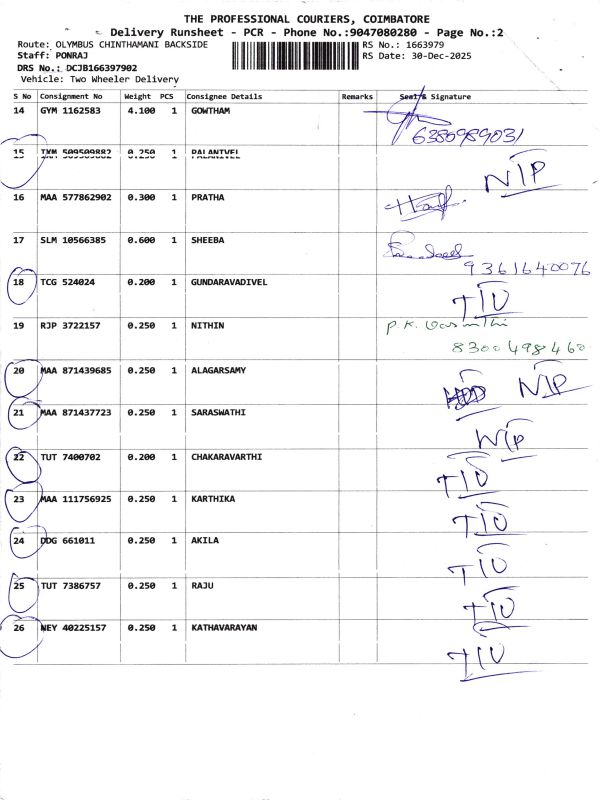 THE PROFESSIONAL COURIERS, COIMBATORE
Delivery Runsheet - PCR - Phone No.:9047080280 - Page No.:2
Route: OLYMBUS CHINTHAMANI BACKSIDE RS No.: 1663979
Staff: PONRAJ RS Date: 30-Dec-2025
DRS No.: DCJB166397902
Vehicle: Two Wheeler Delivery
S No Consignment No Weight PCS Consignee Details Remarks Seal & Signature
14 GYM 1162583 4.100 1 GOWTHAM
6380989031
15 IXM 509509882 0.250 1 PALANIVEL
NIP
16 MAA 577862902 0.300 1 PRATHA
17 SLM 10566385 0.600 1 SHEEBA
9361640076
18 TCG 524024 0.200 1 GUNDARAVADIVEL
TIU
19 RJP 3722157 0.250 1 NITHIN P.K. Vasanthi
8300498460
20 MAA 871439685 0.250 1 ALAGARSAMY
NIP
21 MAA 871437723 0.250 1 SARASWATHI
NIP
22 TUT 7400702 0.200 1 CHAKARAVARTHI
TIU
23 MAA 111756925 0.250 1 KARTHIKA
TIU
24 DDG 661011 0.250 1 AKILA
TIU
25 TUT 7386757 0.250 1 RAJU
TIU
26 NEY 40225157 0.250 1 KATHAVARAYAN
TIU